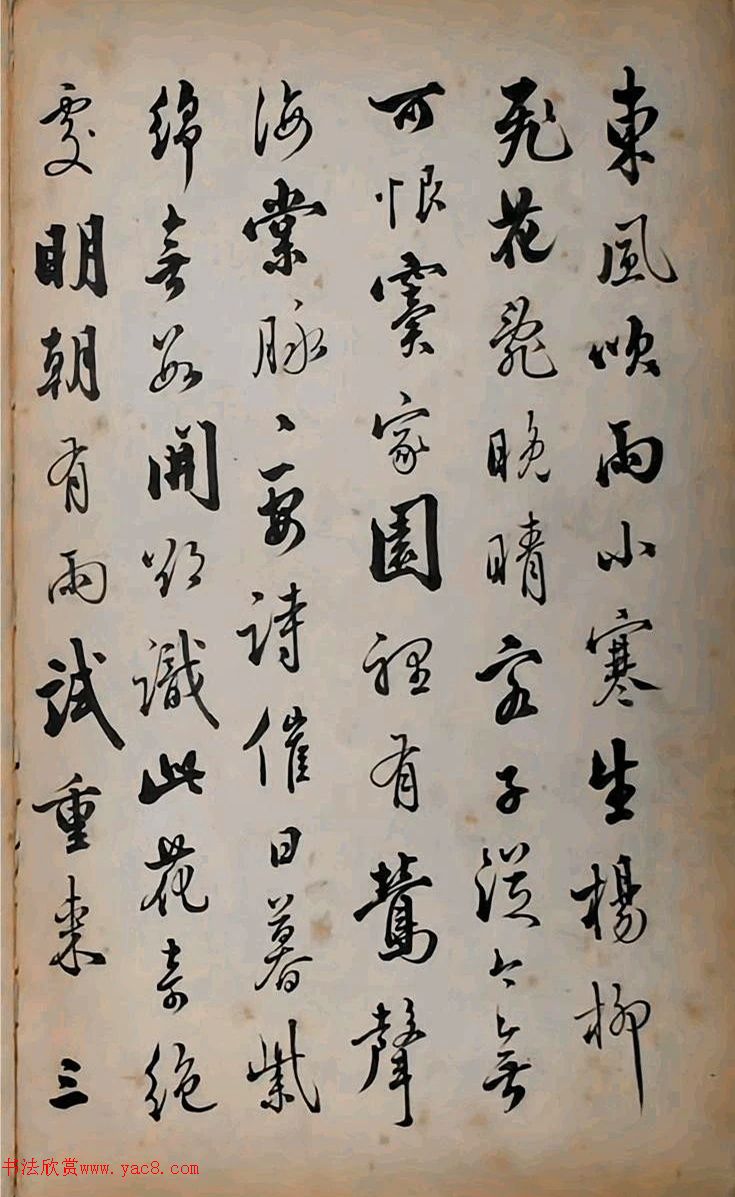 東風吹雨小寒生楊柳
飛花亂晚晴客子從今無
可恨竇家園裡有鶯聲
海棠脈々要詩催日暮紫
綿無數開欲識此花奇絕
處明朝有雨試重來 三
书法欣赏www.yac8.com